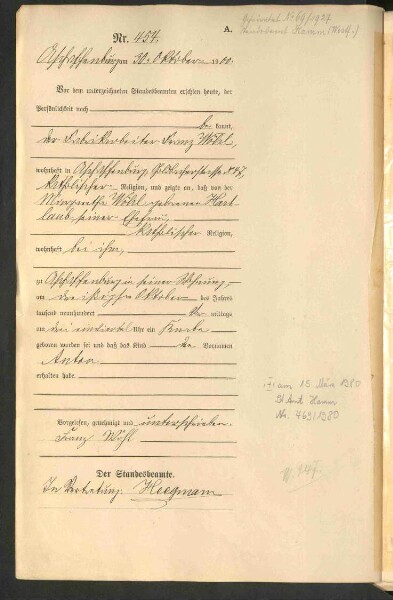 A.
Nr. 454.
Aschaffenburg am 30. Oktober 1900.
Vor dem unterzeichneten Standesbeamten erschien heute, der
Persönlichkeit nach
be kannt,
der Fabrikarbeiter Franz Wöhl,
wohnhaft in Aschaffenburg, Goldbacherstrasse
katholischer Religion, und zeigte an, daß von der
Margaretha Wöhl, geborenen Hart-
laub, seiner Ehefrau,
katholischer Religion,
wohnhaft bei ihm,
zu Aschaffenburg in seiner Wohnung,
am Oktober des Jahres
tausend neunhundert mittags
um drei einviertel Uhr ein Knabe
geboren worden sei und daß das Kind den Vornamen
Anton
erhalten habe.
Vorgelesen, genehmigt und unterschrieben.
Franz Wöhl
Der Standesbeamte.
In Vertretung: Heegmann
Geheiratet 1927
Standesamt Hamm (Westf.)
am 15. März 1980
St. Amt Hamm
Nr. 463/1980